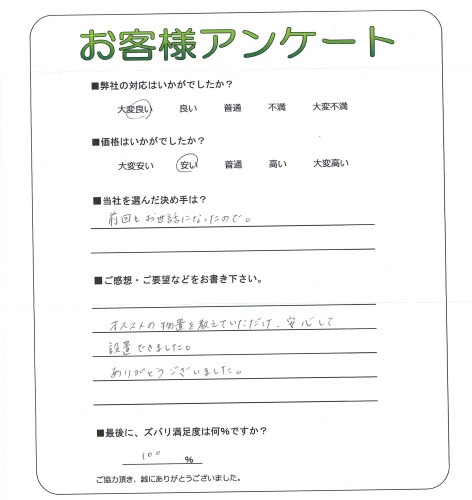 お客様アンケート
■弊社の対応はいかがでしたか？
大変良い 良い 普通 不満 大変不満
■価格はいかがでしたか？
大変安い 安い 普通 高い 大変高い
■当社を選んだ決め手は？
前回もお世話になったので。
■ご感想・ご要望などをお書き下さい。
オススメの物置を教えていただけ、安心して
設置できました。
ありがとうございました。
■最後に、ズバリ満足度は何％ですか？
100 ％
ご協力頂き、誠にありがとうございました。